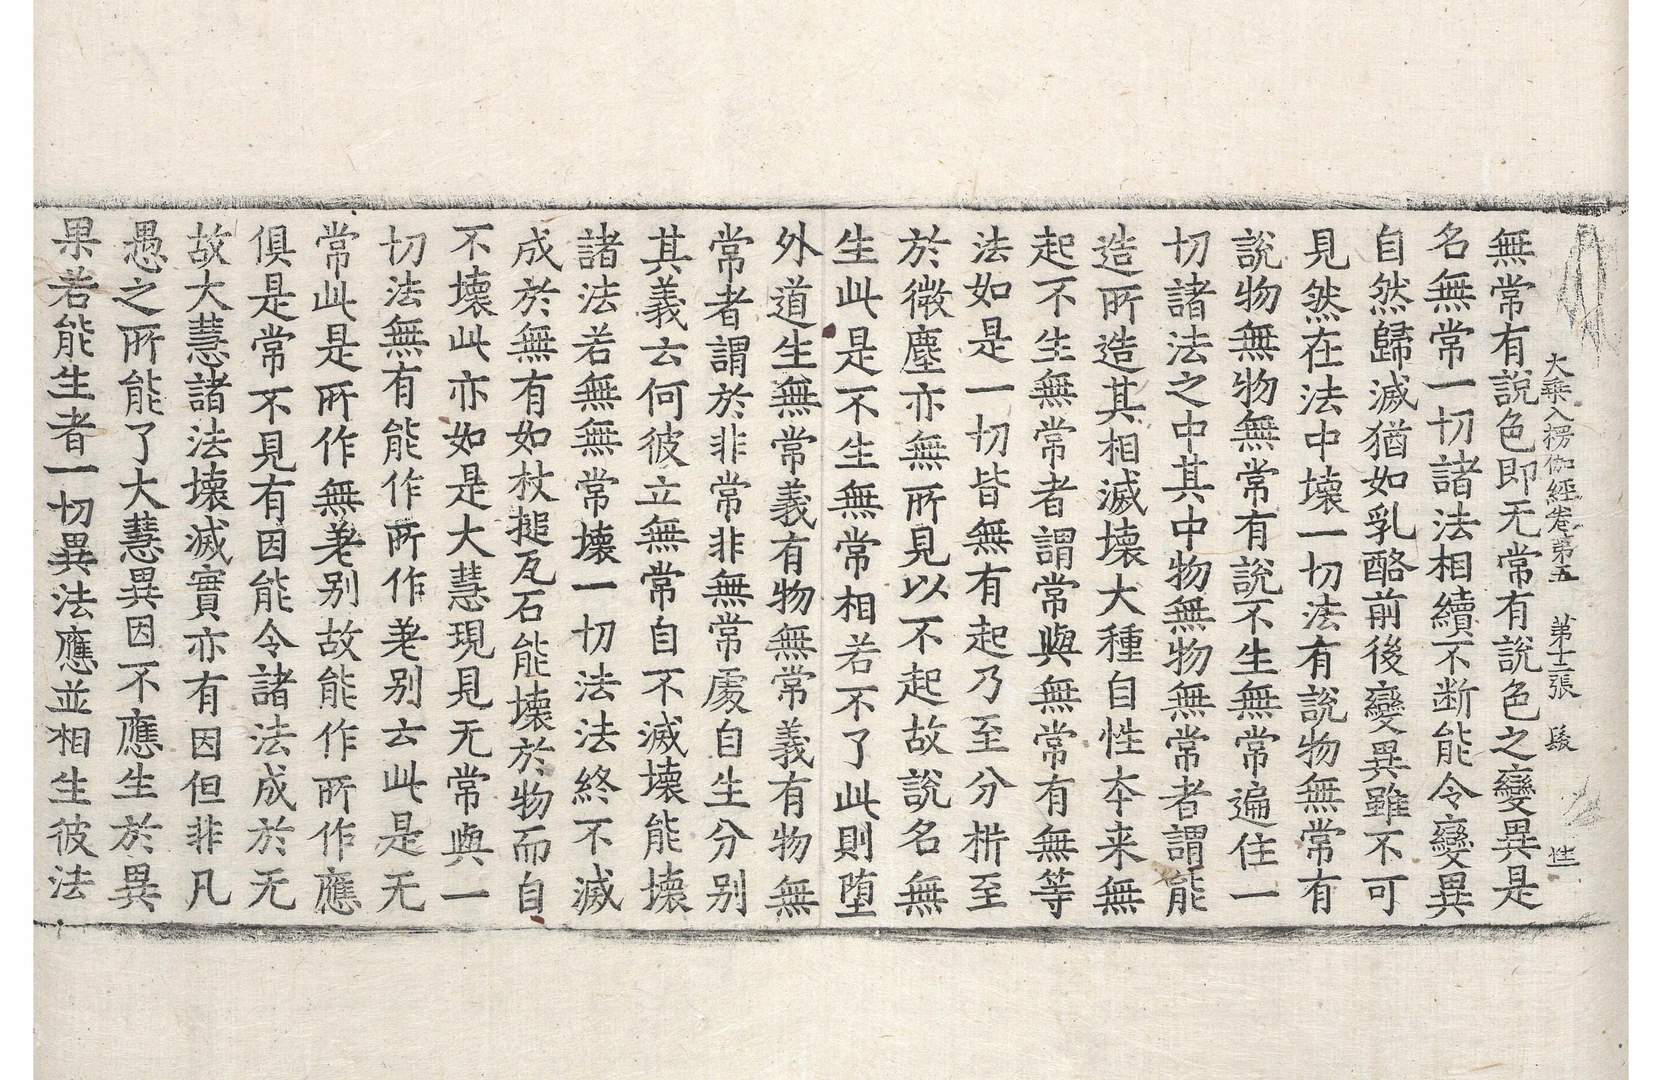 大乘入楞伽經卷第五 第十二張 性
無常有說色即无常有說色之變異是
名無常一切諸法相續不断能令變異
自然歸滅猶如乳酪前後變異雖不可
見然在法中壞一切法有說物無常有
說物無物無常有說不生無常遍住一
切諸法之中其中物無物無常者謂能
造所造其相滅壞大種自性本来無
起不生無常者謂常與無常有無等
法如是一切皆無有起乃至分析至
於微塵亦無所見以不起故說名無
生此是不生無常相若不了此則墮
外道生無常義有物無常義有物無
常者謂於非常非無常處自生分別
其義云何彼立無常自不滅壞能壞
諸法若無無常壞一切法法終不滅
成於無有如杖搥瓦石能壞於物而自
不壞此亦如是大慧現見无常與一
切法無有能作所作差別云此是无
常此是所作無差別故能作所作應
俱是常不見有因能令諸法成於无
故大慧諸法壞滅實亦有因但非凡
愚之所能了大慧異因不應生於異
果若能生者一切異法應並相生彼法